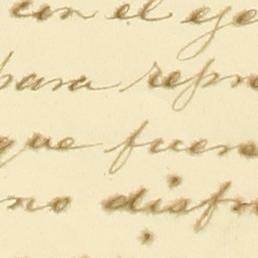 con el eje
para repre
que fuera
no disfr